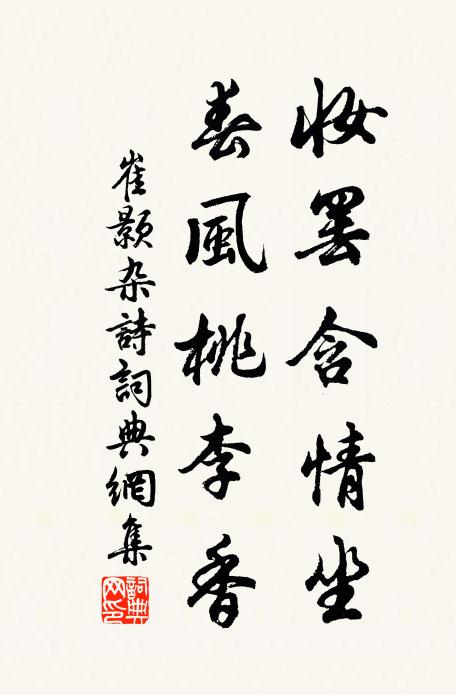 妝罢含情坐
春風桃李香
崔颢杂詩詞典網集
詞典网印